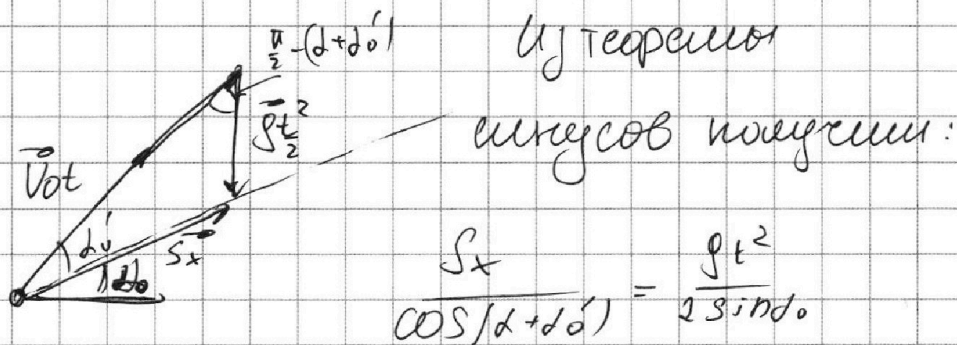 π/2 - (α+α₀')
Из теоремы
gt²/2
синусов получим:
V₀t
α₀'
Sx
Sx / cos(α+α₀') = gt² / 2sinα₀